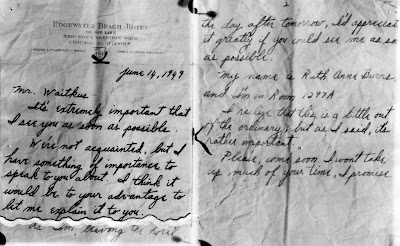 EDGEWATER BEACH HOTEL
5300 BLOCK SHERIDAN ROAD
CHICAGO 40, ILLINOIS
June 14, 1949
Mr. Waitkus
It's extremely important that
I see you as soon as possible.
We're not acquainted, but I
have something of importance to
speak to you about. I think it
would be to your advantage to
let me explain it to you
I'm leaving the hotel
2
the day after tomorrow, I'd appreciate
it greatly if you would see me as soon
as possible.
My name is Ruth Anne Burns,
and I'm in Room 1297A
I realize that this is a little out
of the ordinary, but as I said, its
rather important.
Please, come soon. I won't take
up much of your time, I promise